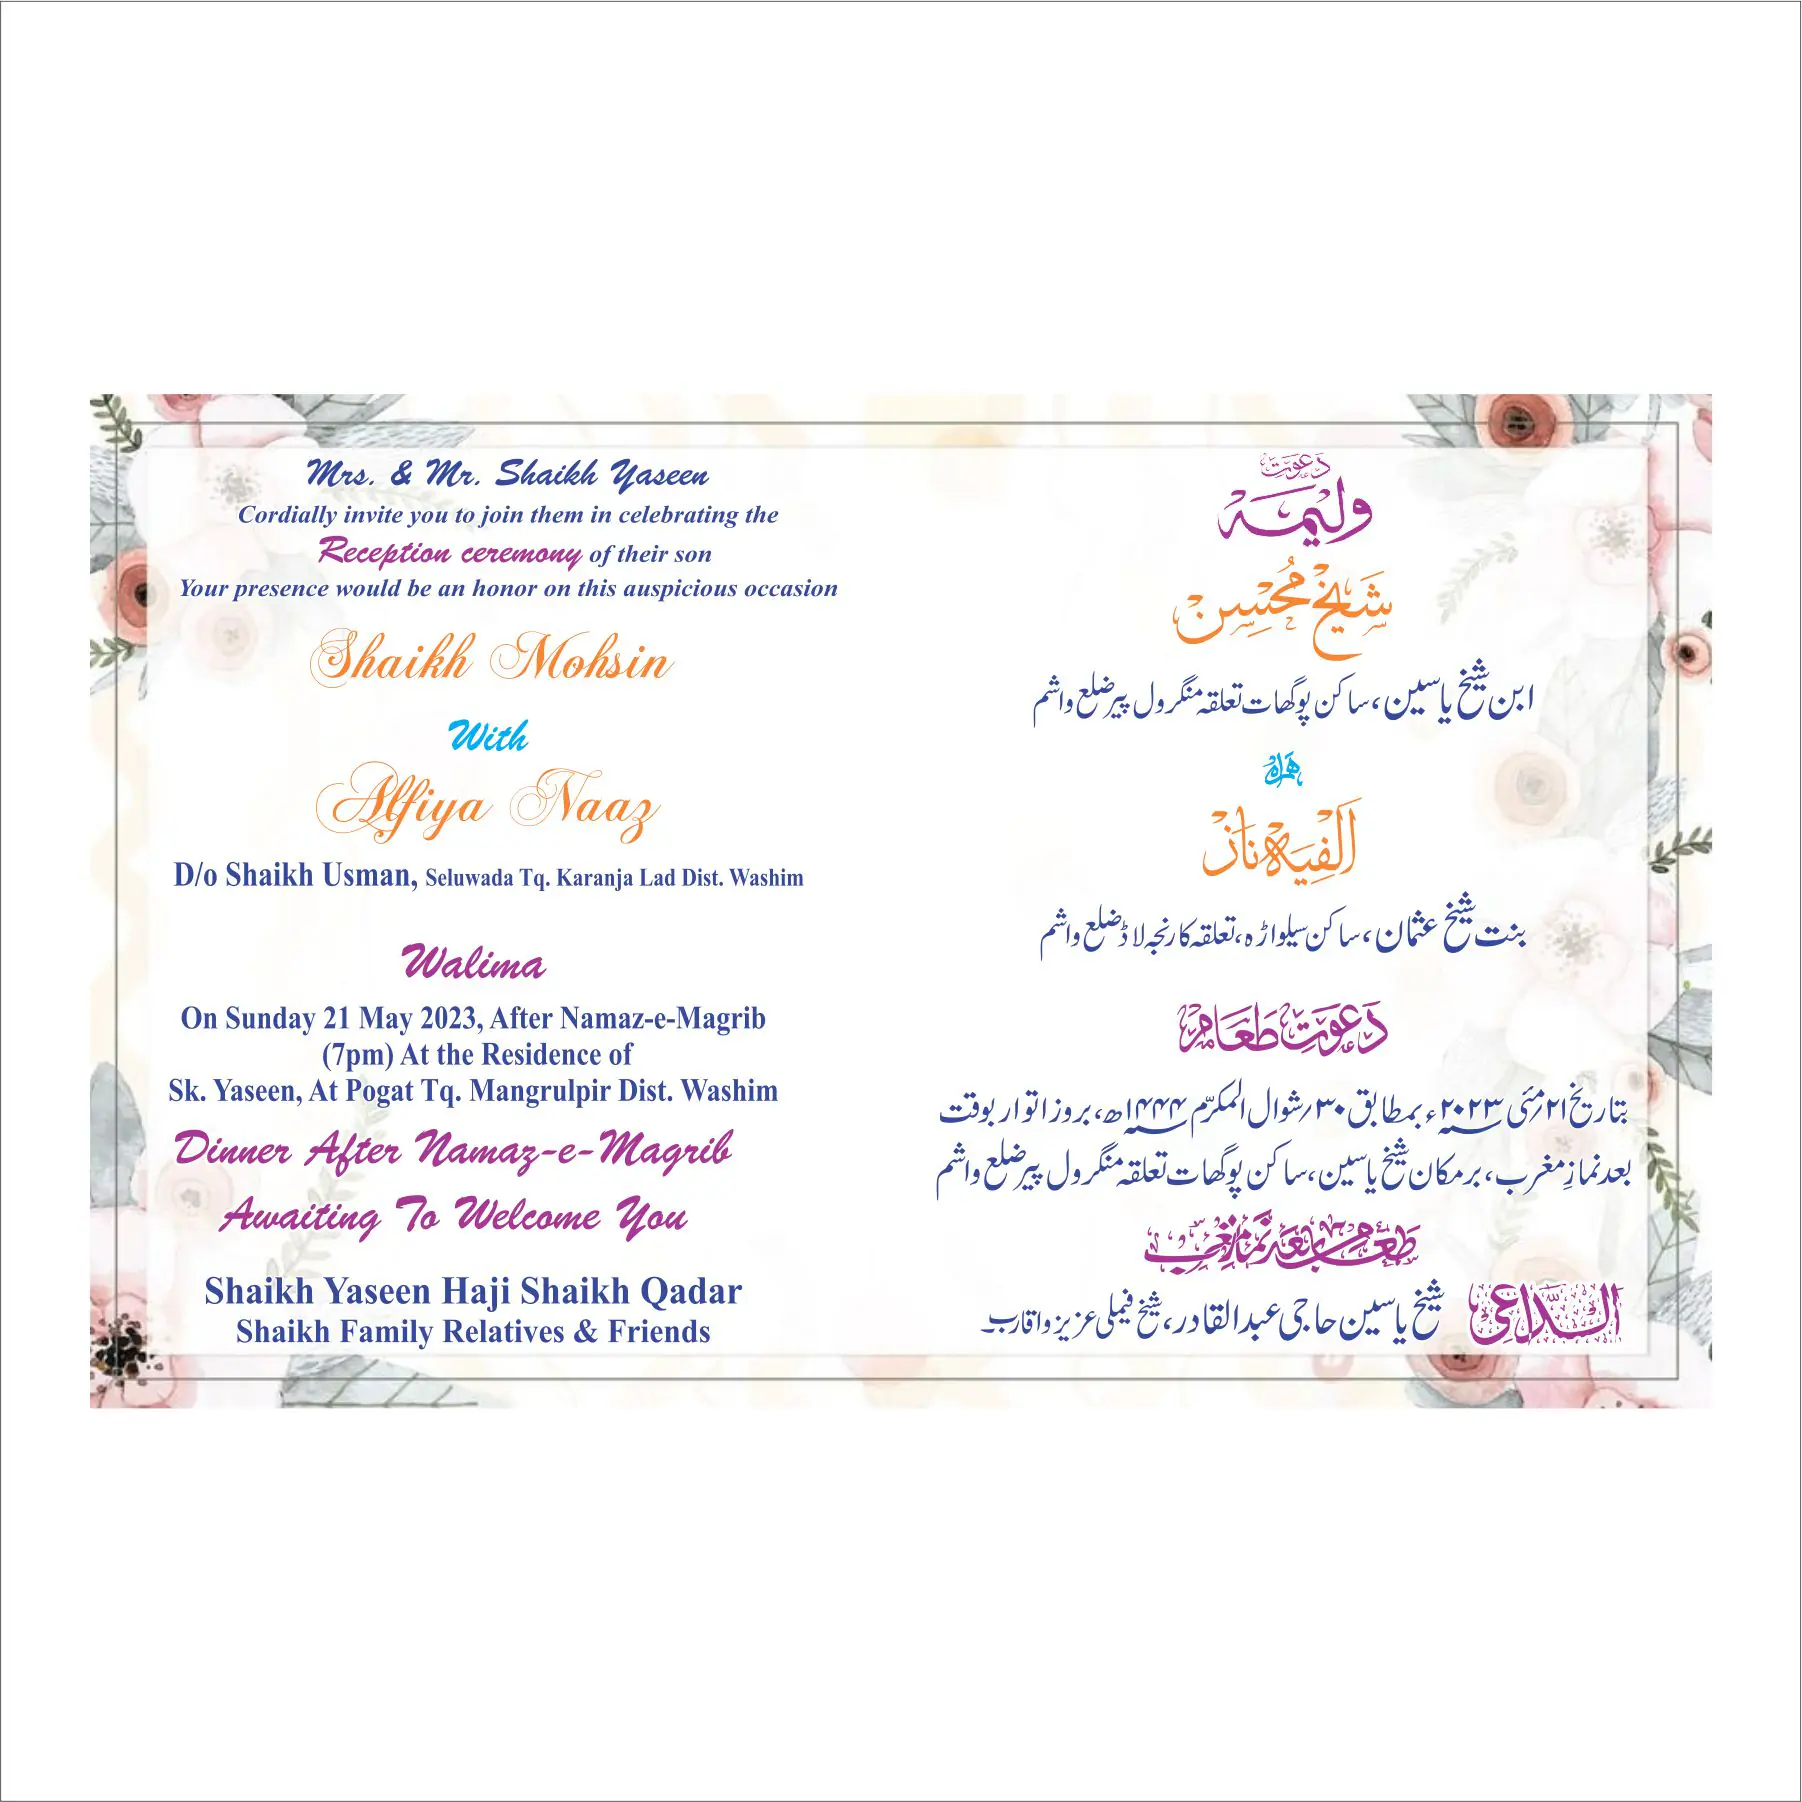 Mrs. & Mr. Shaikh Yaseen
Cordially invite you to join them in celebrating the
Reception ceremony of their son
Your presence would be an honor on this auspicious occasion
Shaikh Mohsin
With
Alfiya Naaz
D/o Shaikh Usman, Seluwada Tq. Karanja Lad Dist. Washim
Walima
On Sunday 21 May 2023, After Namaz-e-Magrib
(7pm) At the Residence of
Sk. Yaseen, At Pogat Tq. Mangrulpir Dist. Washim
Dinner After Namaz-e-Magrib
Awaiting To Welcome You
Shaikh Yaseen Haji Shaikh Qadar
Shaikh Family Relatives & Friends
دعوت
ولیمہ
شیخ مُحسِن
ابن شیخ یاسین، ساکن پوگھات تعلقہ منگرول پیر ضلع واشم
ہمراہ
الفیہ ناز
بنت شیخ عثمان، ساکن سیلواڑہ، تعلقہ کارنجہ لاڈ ضلع واشم
دعوتِ طعام
بتاریخ ۲۱؍مئی ۲۰۲۳ء بمطابق ۳۰؍شوال المکرّم ۱۴۴۴ھ، بروز اتوار بوقت
بعد نمازِ مغرب، بر مکان شیخ یاسین، ساکن پوگھات تعلقہ منگرول پیر ضلع واشم
طعام بعد نماز مغرب
الدّاعی شیخ یاسین حاجی عبدالقادر، شیخ فیملی عزیز و اقارب۔